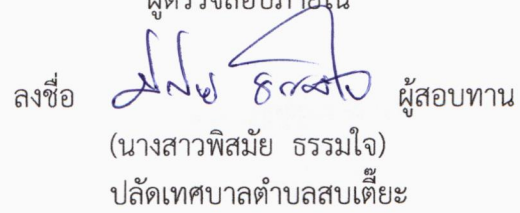 ผู้ตรวจสอบภายใน
ลงชื่อ พิสมัย ธรรมใจ ผู้สอบทาน
(นางสาวพิสมัย ธรรมใจ)
ปลัดเทศบาลตำบลสบเตี๊ยะ